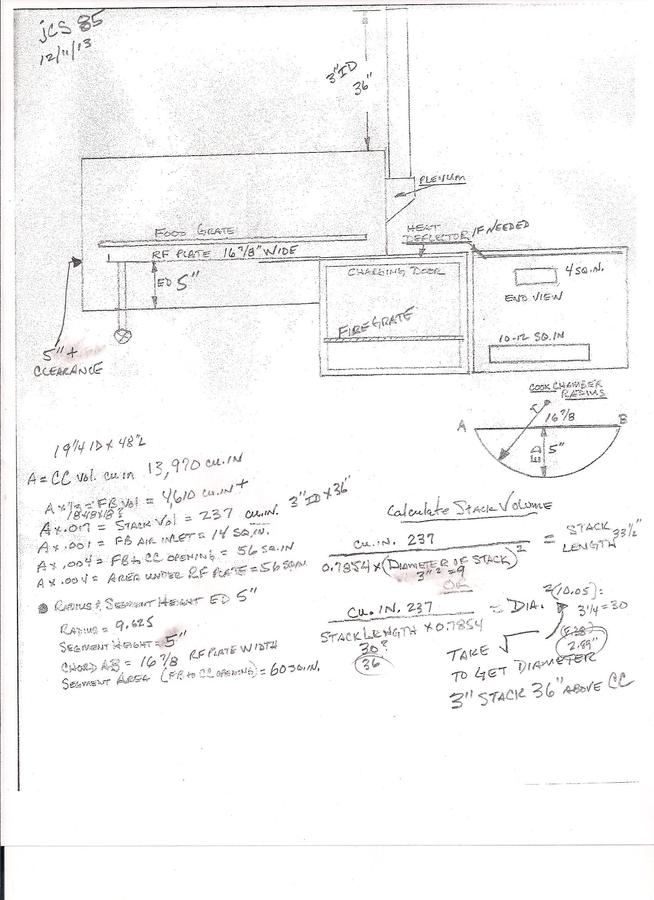 JCS 85
12/11/13
3" ID
36"
PLENUM
FOOD GRATE
RF PLATE 16 7/8" WIDE
HEAT DEFLECTOR/IF NEEDED
CHARGING DOOR
4 SQ.IN.
END VIEW
ED 5"
FIRE GRATE
10-12 SQ.IN
5" +
CLEARANCE
COOK CHAMBER
RADIUS
16 7/8
A
B
ED
5"
19 1/4 ID X 48"L
A = CC VOL. CU.IN 13,970 CU.IN
A X 1/3 = FB VOL = 4,610 CU.IN +
A X .017 = STACK VOL = 237 CU.IN. 3" ID X 36"
A X .001 = FB AIR INLET = 14 SQ.IN.
A X .004 = FB to CC OPENING = 56 SQ.IN
A X .004 = AREA UNDER RF PLATE = 56 SQIN
RADIUS & SEGMENT HEIGHT ED 5"
RADIUS = 9.625
SEGMENT HEIGHT = 5"
CHORD AB = 16 7/8 RF PLATE WIDTH
SEGMENT AREA (FB to CC OPENING) = 60 SQ.IN.
Calculate STACK VOLUME
CU.IN. 237
0.7854 X (DIAMETER OF STACK)2
= STACK LENGTH 33 1/2"
3"2 = 9
OR
CU.IN. 237
STACK LENGTH X 0.7854
= DIA.
2(10.05):
3 1/4 = 30
30?
36
2.89"
TAKE √
TO GET DIAMETER
3" STACK 36" ABOVE CC